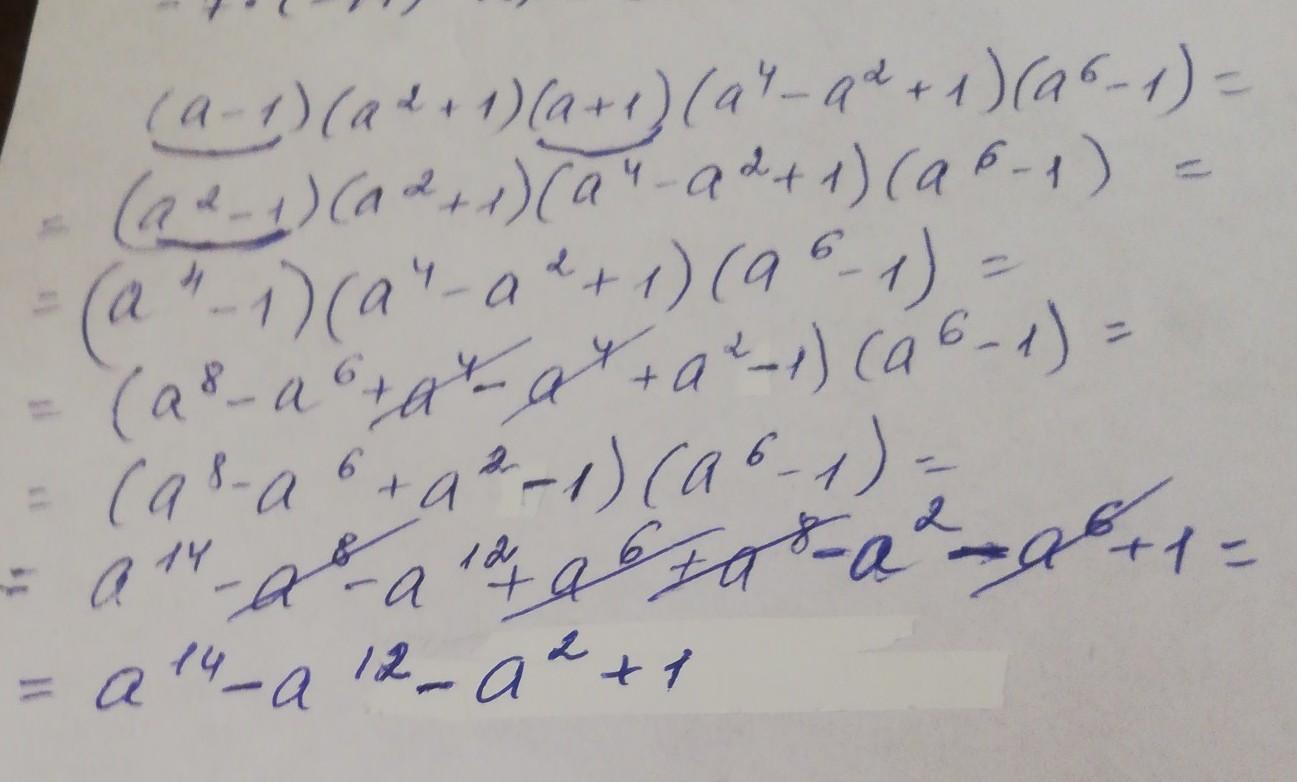 (a-1)(a²+1)(a+1)(a⁴-a²+1)(a⁶-1)=
=(a²-1)(a²+1)(a⁴-a²+1)(a⁶-1)=
=(a⁴-1)(a⁴-a²+1)(a⁶-1)=
=(a⁸-a⁶+a⁴-a⁴+a²-1)(a⁶-1)=
=(a⁸-a⁶+a²-1)(a⁶-1)=
=a¹⁴-a⁸-a¹²+a⁶+a⁸-a²-a⁶+1=
=a¹⁴-a¹²-a²+1